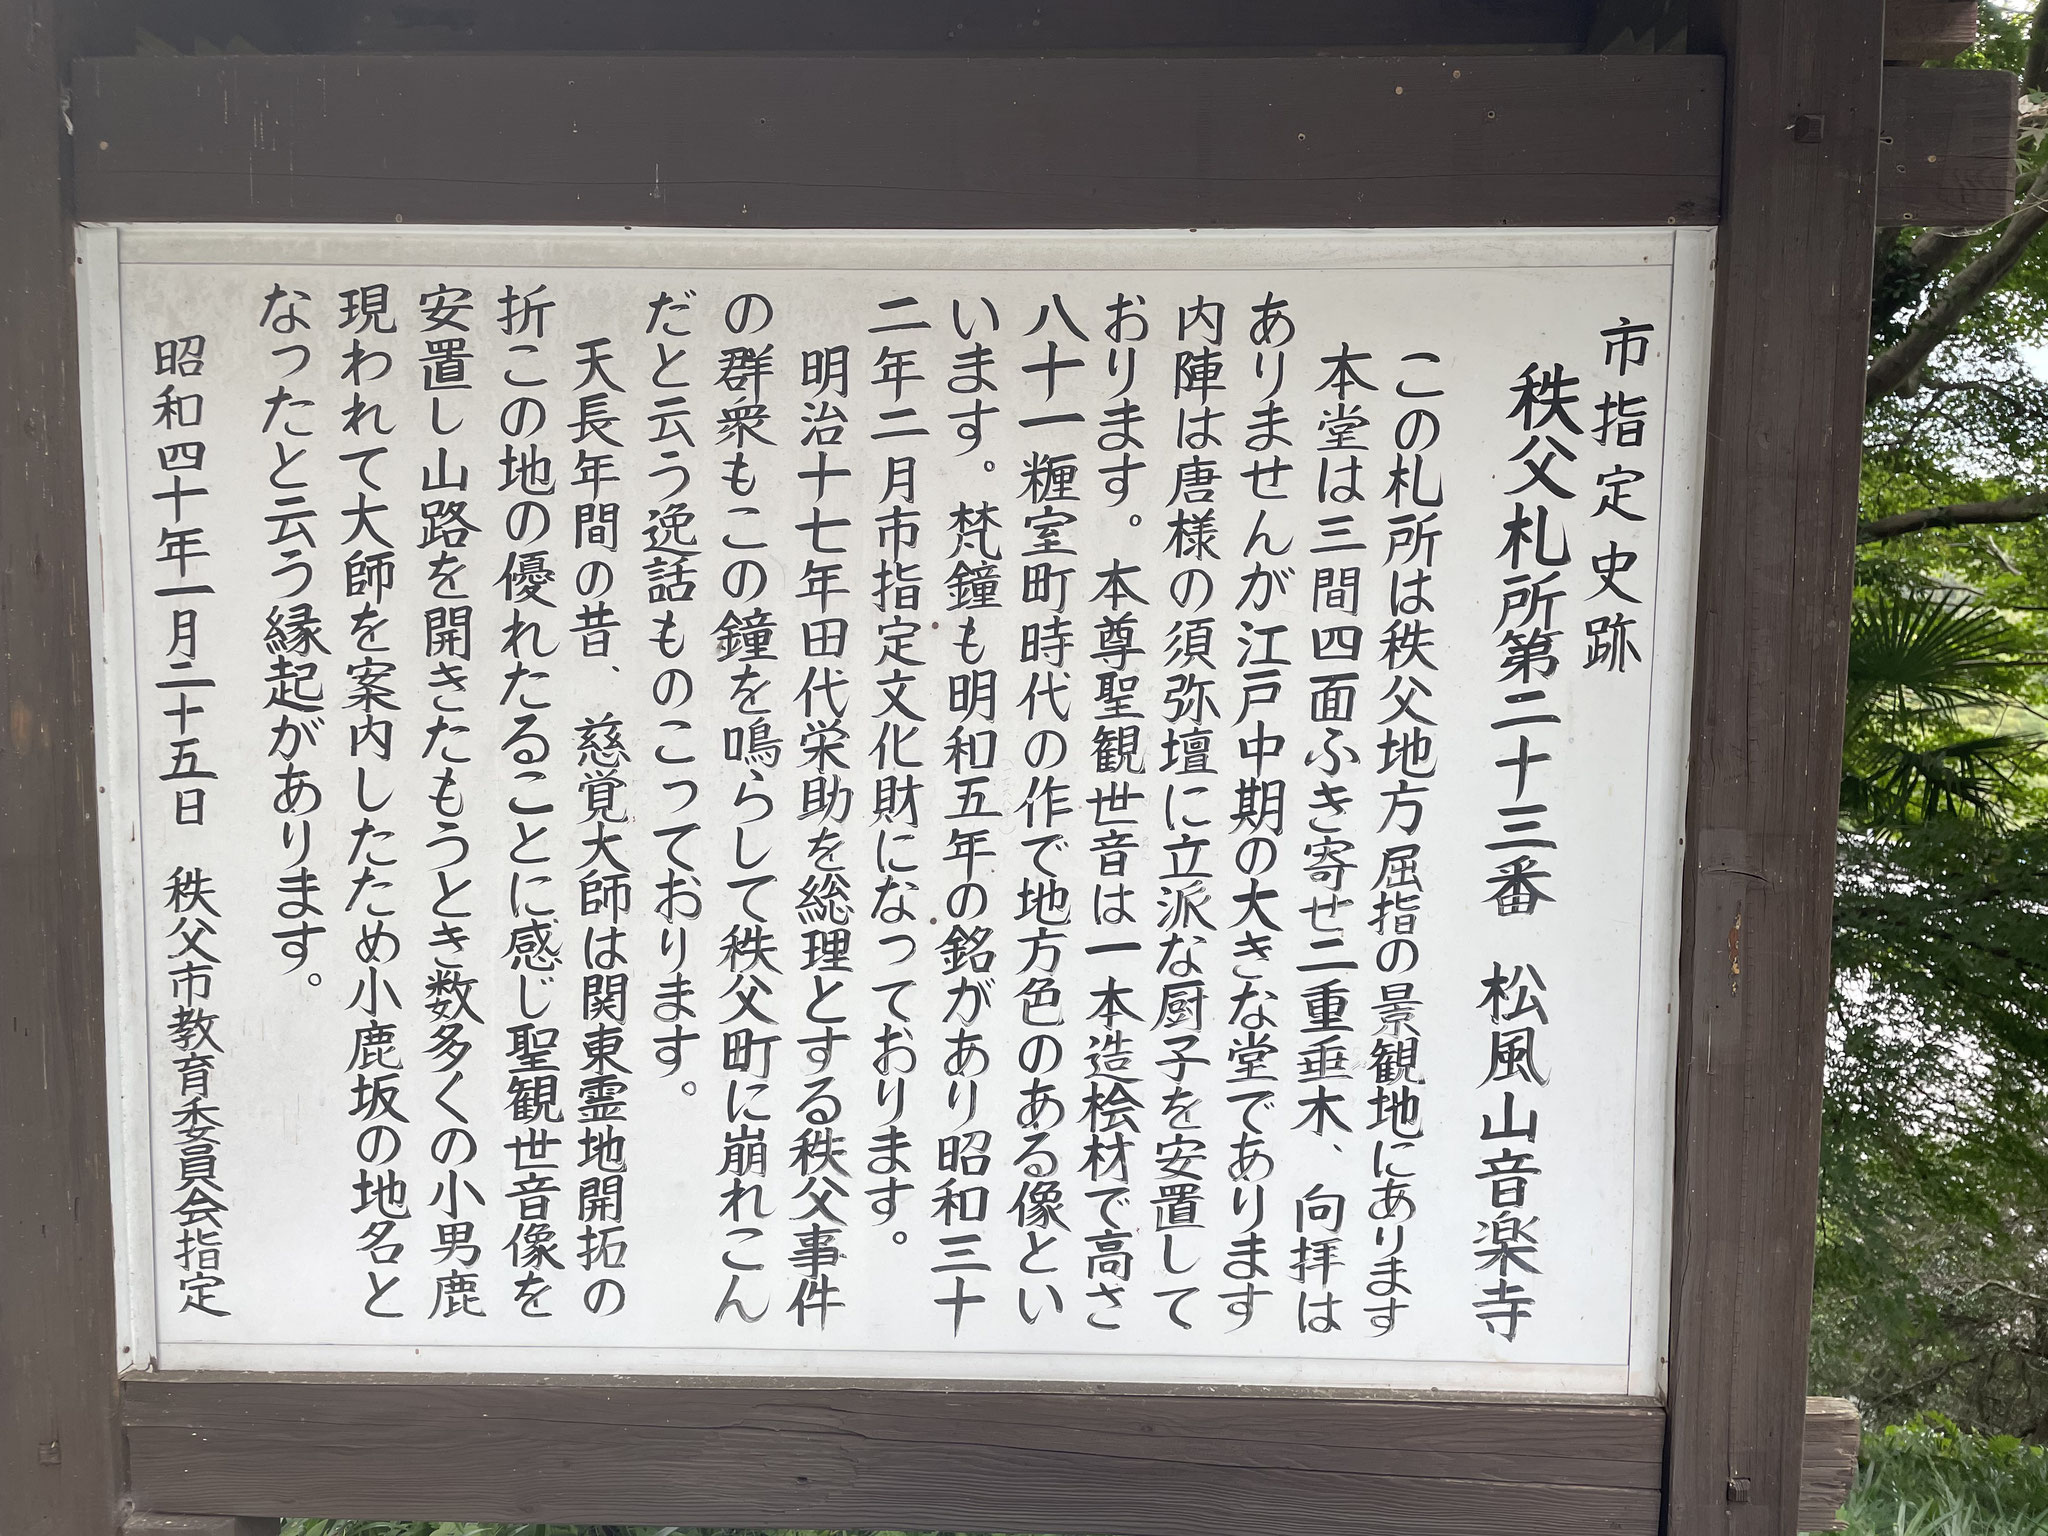 市指定史跡
秩父札所第二十三番　松風山音楽寺
この札所は秩父地方屈指の景観地にあります
本堂は三間四面ふき寄せ二重垂木、向拝は
ありませんが江戸中期の大きな堂であります
内陣は唐様の須弥壇に立派な厨子を安置して
おります。本尊聖観世音は一本造桧材で高さ
八十一糎室町時代の作で地方色のある像とい
います。梵鐘も明和五年の銘があり昭和三十
二年二月市指定文化財になっております。
明治十七年田代栄助を総理とする秩父事件
の群衆もこの鐘を鳴らして秩父町に崩れこん
だと云う逸話ものこっております。
天長年間の昔、慈覚大師は関東霊地開拓の
折この地の優れたることに感じ聖観世音像を
安置し山路を開きたもうとき数多くの小男鹿
現われて大師を案内したため小鹿坂の地名と
なったと云う縁起があります。
昭和四十年一月二十五日　秩父市教育委員会指定